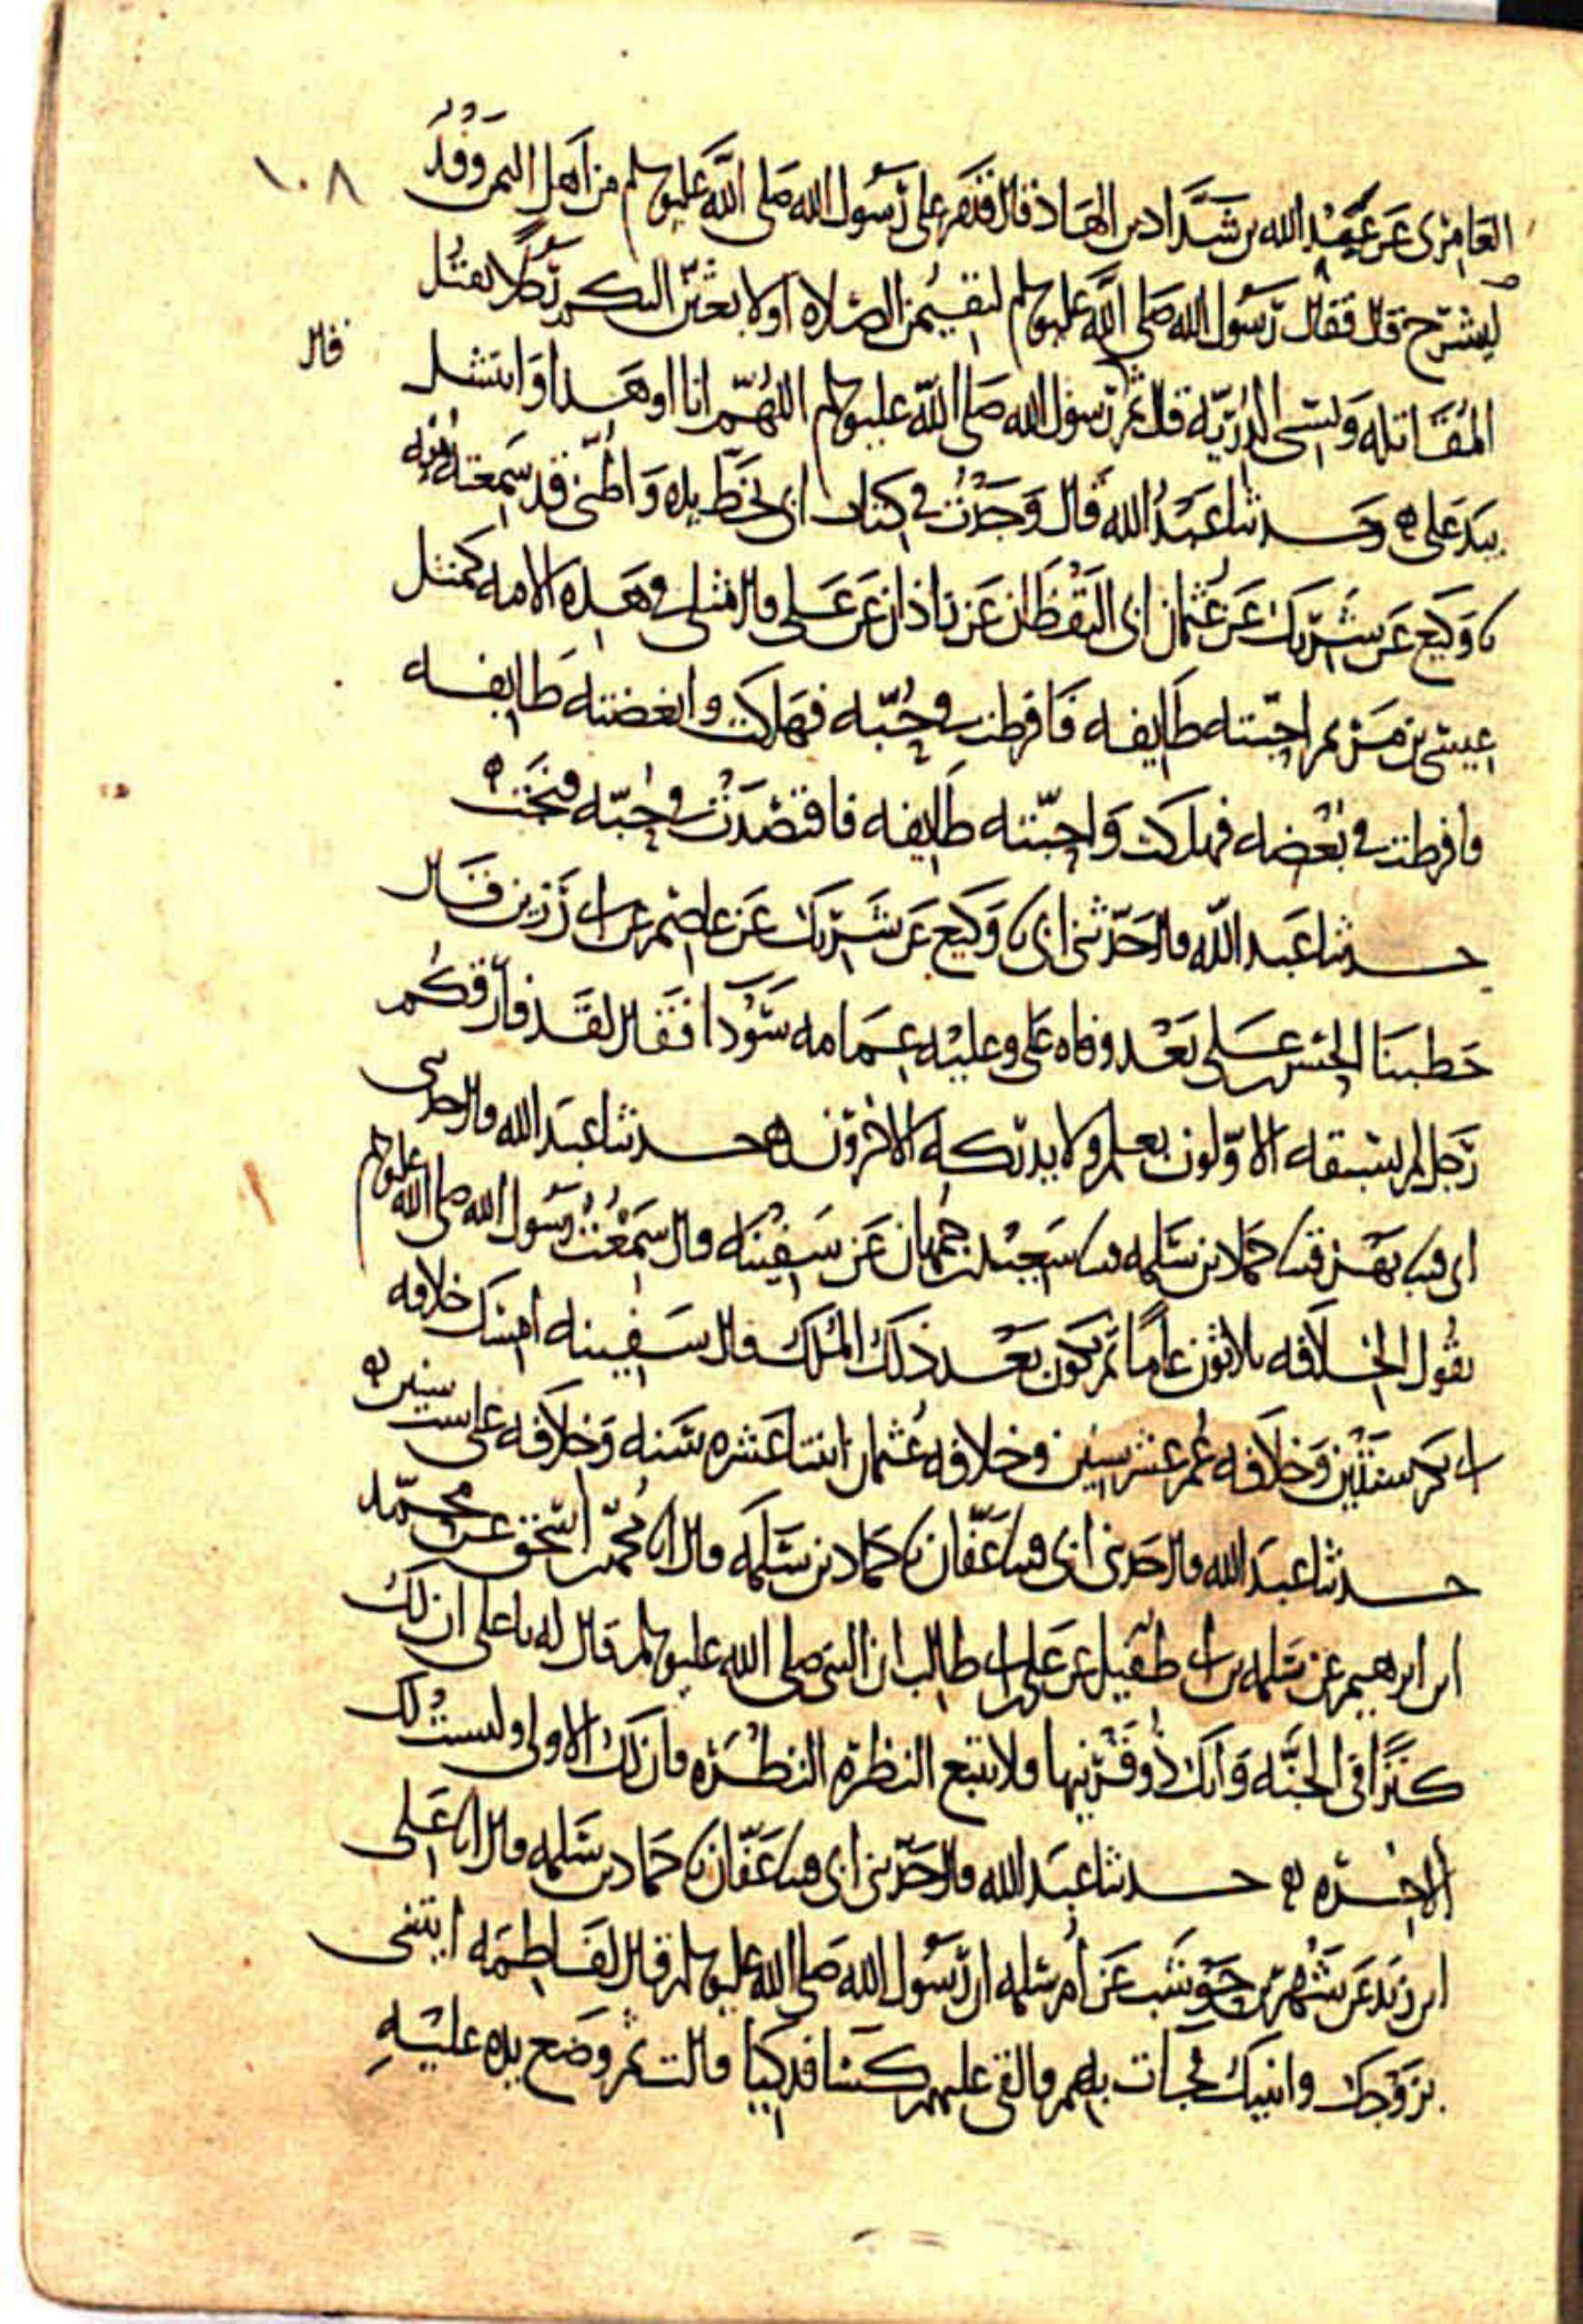 ١٠٨
العامري عن عبد الله بن شداد بن الهاد قال قدم على رسول الله صلى الله عليه وسلم من اهل اليمن وفد
ليشرح قال فقال رسول الله صلى الله عليه وسلم لتقيمن الصلاة او لابعثن اليكم رجلا يقتل
المقاتله ويسبي الذريه قال ثم قال رسول الله صلى الله عليه وسلم اللهم انا او هذا وانتشل
قال
بيد علي ه وحدثنا عبد الله قال وجدت في كتاب ابي بخط يده واظنني قد سمعته منه
نا وكيع عن شريك عن عثمان ابي اليقظان عن زاذان عن علي قال مثلي في هذه الامه كمثل
عيسى بن مريم احبته طايفه فافرطت في حبه فهلكت وابغضته طايفه
فافرطت في بغضه فهلكت واحبته طايفه فاقتصدت في حبه فنجت ه
حدثنا عبد الله قال حدثني ابي نا وكيع عن شريك عن عاصم عن ابي رزين قال
خطبنا الحسن بن علي بعد وفاه علي وعليه عمامه سودا فقال لقد فارقكم
رجل لم يسبقه الاولون بعلم ولا يدركه الاخرون ه حدثنا عبد الله قال حدثني
ابي قثنا بهز قثنا حماد بن سلمه قثنا سعيد بن جمهان عن سفينه قال سمعت رسول الله صلى الله عليه وسلم
يقول الخلافه ثلاثون عاما ثم يكون بعد ذلك الملك قال سفينه امسك خلافه
ابي بكر سنتين وخلافه عمر عشر سنين وخلافه عثمان اثنتا عشره سنه وخلافه علي ست سنين ه
حدثنا عبد الله قال حدثني ابي قثنا عفان نا حماد بن سلمه قال انا محمد بن اسحق عن محمد
ابن ابرهيم عن سلمه بن ابي طفيل عن علي بن ابي طالب ان النبي صلى الله عليه وسلم قال له يا علي ان لك
كنزا في الجنه وانك ذو قرنيها فلا تتبع النظره النظره فان لك الاولى وليست لك
الاخره ه حدثنا عبد الله قال حدثني ابي قثنا عفان نا حماد بن سلمه قال انا علي
ابن زيد عن شهر بن حوشب عن ام سلمه ان رسول الله صلى الله عليه وسلم قال لفاطمه ايتيني
بزوجك وابنيك فجات بهم فالقى عليهم كسا فدكيا قالت ثم وضع يده عليه